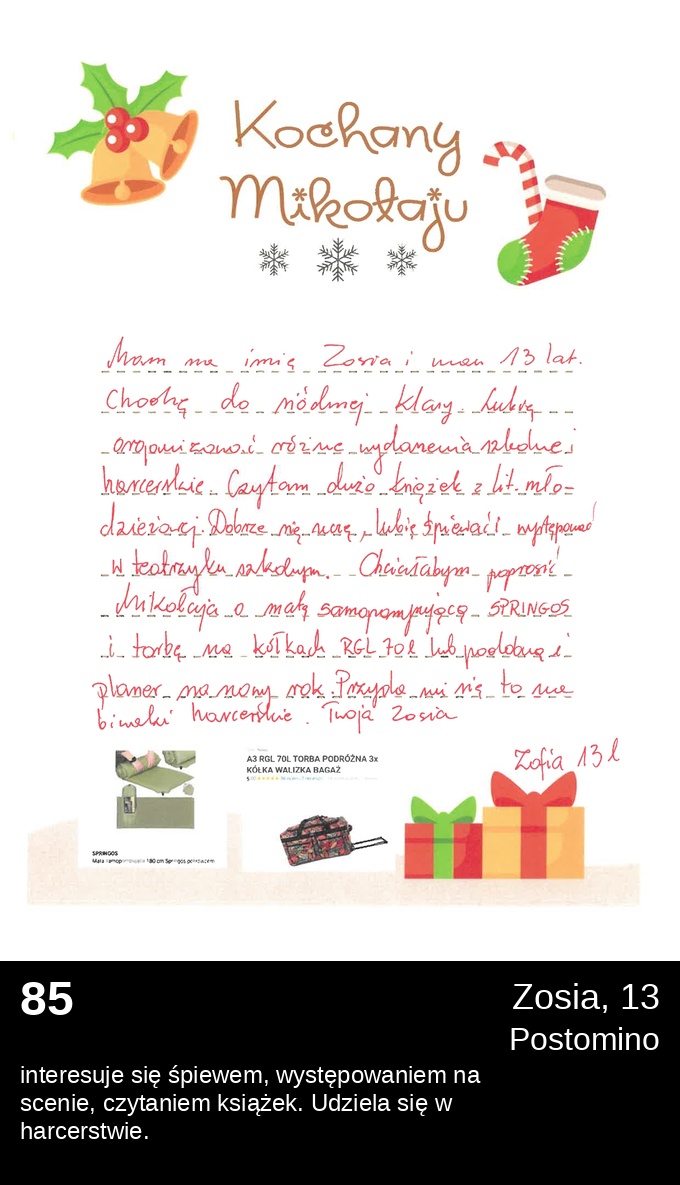 Kochany
Mikołaju
Mam na imię Zosia i mam 13 lat.
Chodzę do siódmej klasy. Lubię
organizować różne wydarzenia szkolne i
harcerskie. Czytam dużo książek z lit. mło-
dzieżowej. Dobrze się uczę, lubię śpiewać i występować
w teatrzyku szkolnym. Chciałabym poprosić
Mikołaja o matę samopompującą SPRINGOS
i torbę na kółkach RGL 70l lub podobną i
planer na nowy rok. Przyda mi się to na
biwaki harcerskie. Twoja Zosia
Zofia 13 l
A3 RGL 70L TORBA PODRÓŻNA 3x
KÓŁKA WALIZKA BAGAŻ
SPRINGOS
Mata samopompująca 180 cm Springos
85
Zosia, 13
Postomino
interesuje się śpiewem, występowaniem na
scenie, czytaniem książek. Udziela się w
harcerstwie.